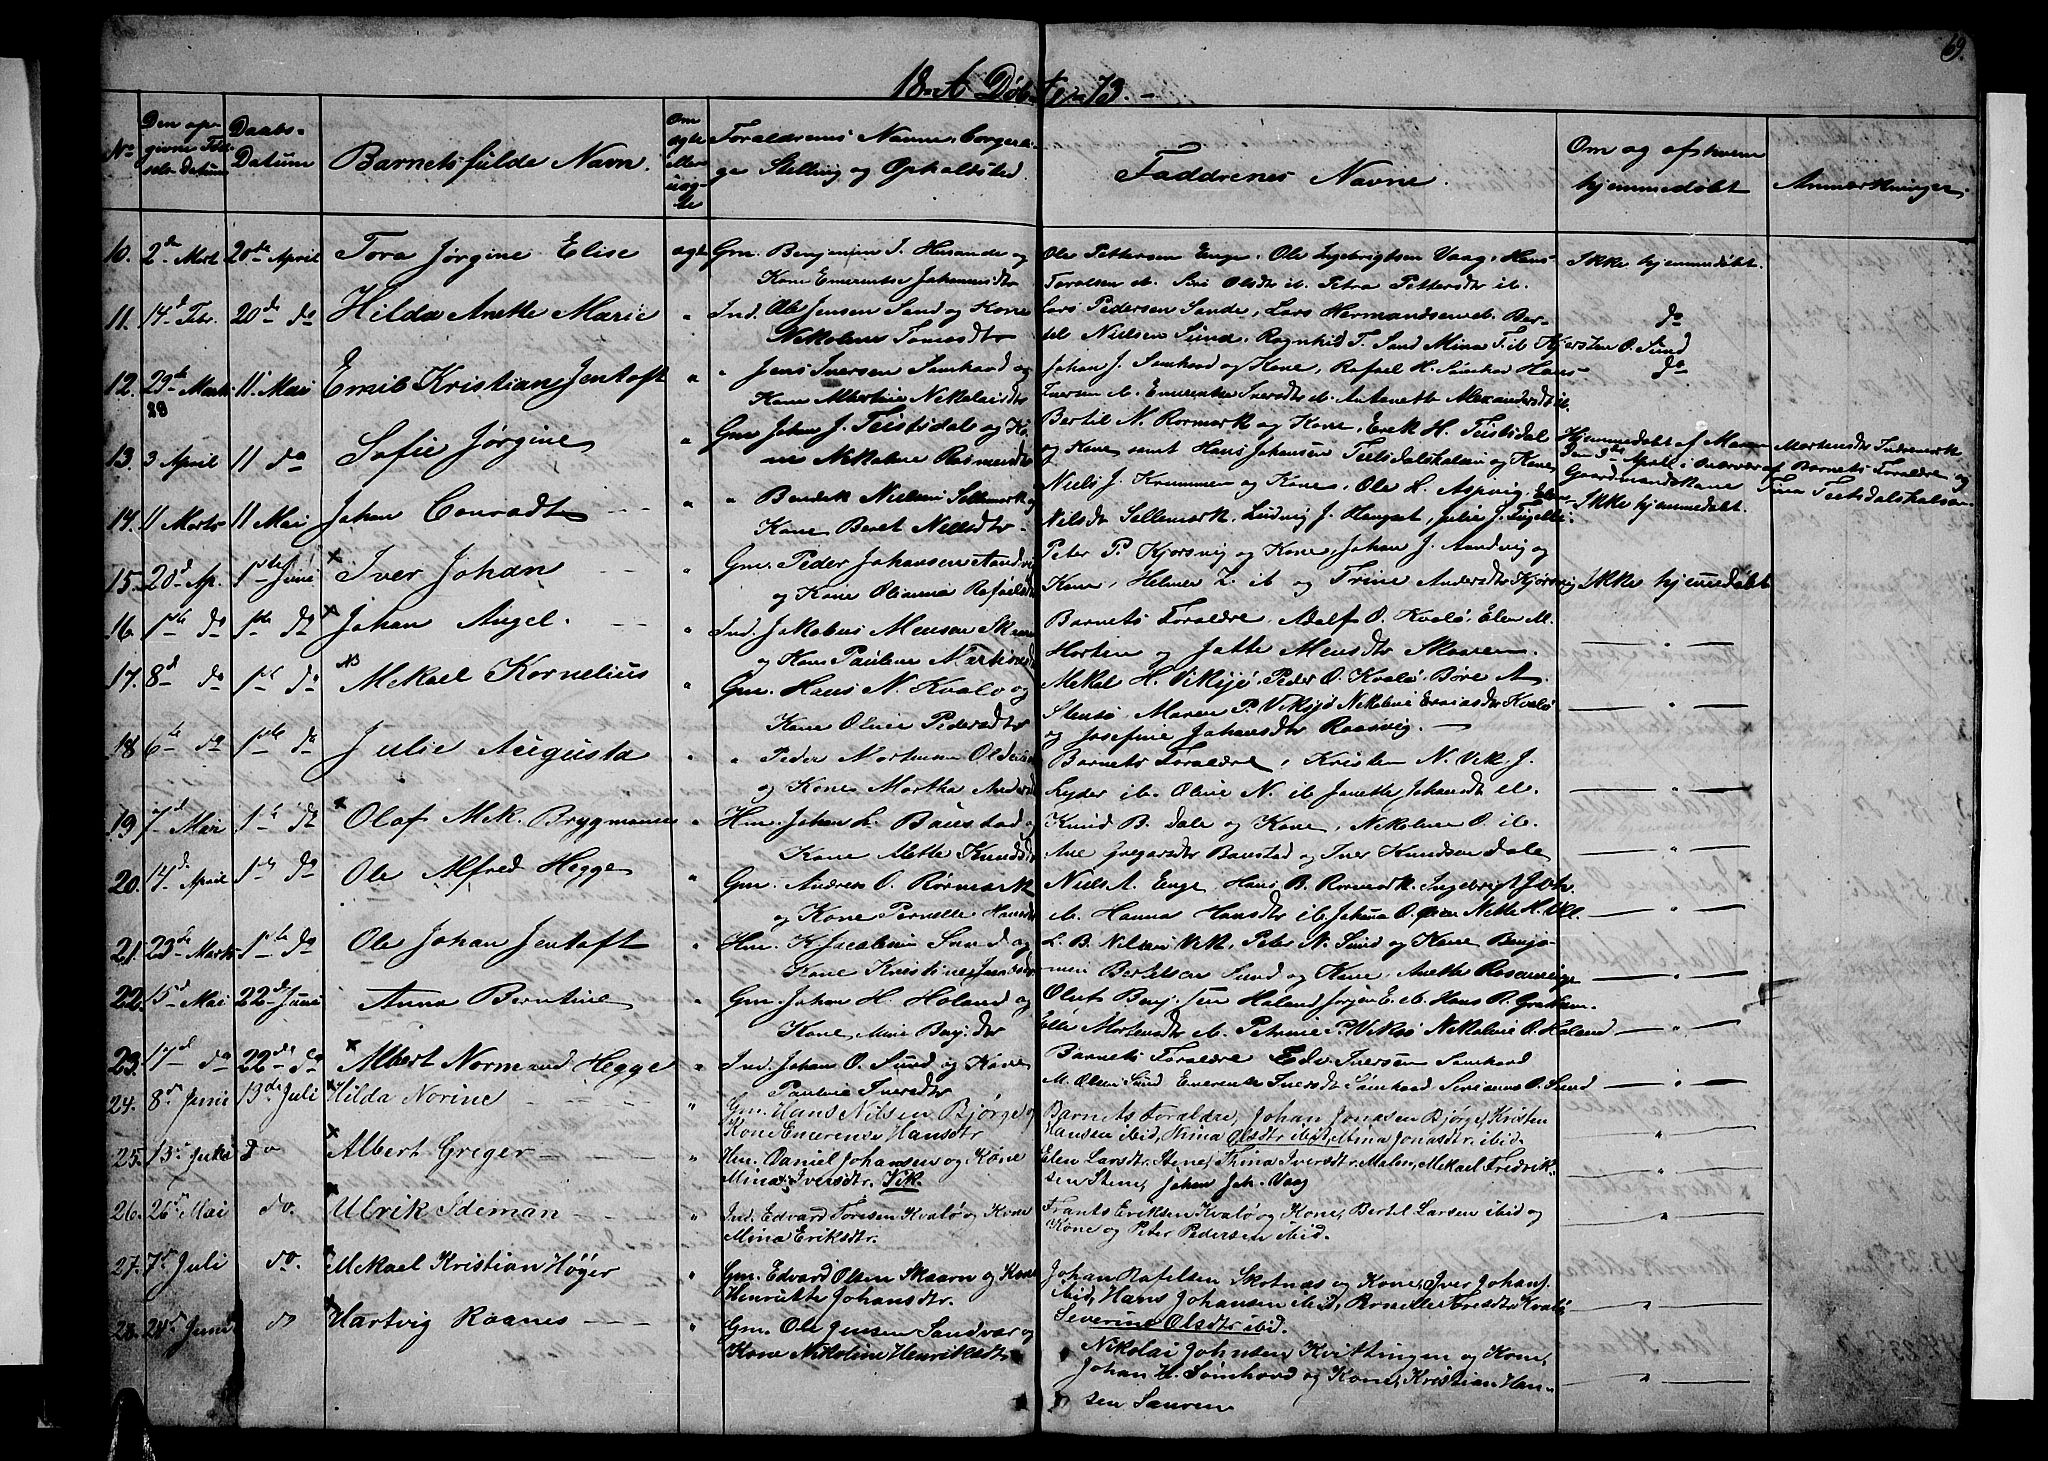 69.
18 - A Døbte - 73. -
No
Den op-
givne Fød-
sels-Datum
Daabs-
Datum
Barnets fulde Navn.
Om
ægte
eller
uæg-
te
Forældrenes Navne, Borgerli-
ge Stilling og Opholdsted.
Faddrenes Navne.
Om og af hvem
hjemmedøbt
Anmærkninger
10. 2de Mart 20de April Tora Jørgine Elise ægte Gm. Benjamin J. Husande og
Kone Emerentse Johannesdtr
Ole Pettersen Enge, Ole Ingebrigtsen Vaag, Hans
Toralsen ib. Bri Olsdtr ib. Petra Pettersdtr ib.
Ikke hjemmedøbt.
11. 14d Febr. 20de do Hilda Anette Marie " Ind. Ole Jensen Sund og Kone
Nikoline Tomasdtr
Lars Pedersen Sande, Lars Hermandsen ib. Ber-
del Nielsen Sund, Ragnhild T. Sund Mina T. ib Kjersten O. Sund
do
12. 29de Marts 11 Mai Emil Kristian Jentoft " " Jens Iversen Sømhovd og
Kone Martine Nikolaidtr
Johan J. Sømhovd og Kone, Rafael H. Sømhovd Hans
Iversen ib. Emerentse Iversdtr ib. Antonette Alexandersdtr ib.
do
88
13. 3 April 11 do Sofie Jørgine " Gm Johan J. Teistsdal og Ko-
ne Nikoline Rasmusdtr
Bertil N. Rørmark og Kone, Erik H. Teistsdal
og Kone samt Hans Johansen Teistsdalskalsen og Kone,
Hjemmedøbt af Maren Mortensdtr Indremark
Den 3die April i Nærvær af Barnets Forældre og
Gaardmandskone Tina Teistsdalskalsen
14. 11 Marts 11 Mai Johan Conradt - - - " " Bendik Nielsen Sellemark og
Kone Beret Nilsdtr -
Niels J. Krummen og Kone, Ole H. Aspvig, Elen
Nilsdtr Sellemark, Ludvig J. Hengset, Julie J. Tigelli.
Ikke hjemmedøbt.
15. 20d Ap. 1ste Juni x Iver Johan - - - " Gm. Peder Johansen Aandvig
og Kone Olimina Rafaelsdtr
Peter P. Kjørsvig og Kone, Johan J. Aandvig og
Kone, Helmer Z. ib og Trine Andersdtr Kjørsvig
Ikke hjemmedøbt
16. 1ste do 1ste do x Johan Angel. - - - " Ind. Jakobus Mensen Skaaren
og Kone Pauline Martinsdtr
Barnets Forældre, Adolf O. Kvalø, Elen M.
Horten og Jette Mensdtr Skaaren.
— " —
17. 8d do 1ste do NB Mekael Kornelius " Gm. Hans N. Kvalø og
Kone Oline Pedersdtr
Mekel H. Viksjø, Peder O. Kvalø, Børe A.
Stensø, Maren P. Viksjø Nikoline Eriasdtr Kvalø
og Josefine Johansdtr Raasvig. —
— " —
18 6te do 1ste do Julie Augusta " " Peder Mortensen Olderen
og Kone Martha Andersdtr
Barnets Forældre, Kristen N. Vik, J.
Lyder ib. Oline N. ib Janette Johansdtr ib.
— " —
19 7d Mai 1ste do x Olaf Mek. Brygmann " Hm. Johan L. Baustad og
Kone Mette Knudsdtr
Knud B. Dale og Kone, Nikoline O. ib.
Ane Gregarsdtr Baustad og Iver Knudsen Dale
— " —
20. 14de April 1ste do Ole Alfred Hegge " Gm. Andreas O. Rørmark
og Kone Pernelle Hansdtr
Niels A. Enge Hans B. Rørmark. Ingebrigt Joh.
ib. Hanna Hansdtr ib Johna O. Øien Nette H. Vik.
— " —
21. 22de Marts 1ste do Ole Johan Jentoft " Hm. K. Jacobsen Sund og
Kone Kristine Jensdtr
L. B. Nilsen Vik, Peter N. Sund og Kone Benja-
min Bertelsen Sund og Kone, Anette Rosenvinge
— " —
22. 15d Mai 22de Juni Anna Berntine " Gm. Johan H. Holand og
Kone Mine Benj.dtr
Oluf Benj.sen Holand, Jørgen E. ib. Hans P. Grøthem.
Elle Mortensdtr ib. Petrine P. Viksjø Nikoline O. Holand
— " —
23. 17d do 22de do x Albert Normand Hegge " Ind. Johan O. Sund og Kone
Pauline Iversdtr
Barnets Forældre Edv. Iversen Sømhovd
M. Olsen Sund Emerentse Iversdtr Sømhovd Serianus O. Sund
— " —
24. 8de Juni 13de Juli x Hilda Norine - - - - " Gm. Hans Nilsen Bjørge og
Kone Emerense Hansdtr
Barnets Forældre, Johan Jonasen Bjørge, Kristen
Hansen ibid, Nina Olsdtr ibid, Mina Jonasdtr. ibid.
— " —
25. 13de Juli do x Albert Greger - - - - " Hm. Daniel Johansen og Kone
Mina Iversdtr. Vik.
Elen Larsdtr. Stene, Thina Iversdtr. Malen, Mekael Fredrik-
sen Stene, Johan Joh. Vaag
— " —
26. 26de Mai do. x Ulrik Ideman - - - " Ind. Edvard Toresen Kvalø og Kone
Mina Eriksdtr.
Frants Eriksen Kvalø og Kone, Bertel Larsen ibid og
Kone og Peter Pedersen ibid.
— " —
27. 7de Juli do. x Mekael Kristian Høyer " Gm. Edvard Olsen Skaarn og Kone
Henrikke Johansdtr.
Johan Rafelsen Skotnæs og Kone, Iver Johans.
ibid, Hans Johansen ibid, Ronelle Kresdtr Kvalø
Severine Olsdtr ibid.
— " —
28. 28de Juni do x Hartvig Roanes - - - - " Gm. Ole Jensen Sandvær og
Kone Nikoline Henriksdtr
Nikolai Johnsen Kvittingen og Kone,
Johan H. Sømhovd og Kone, Kristian Han-
sen Sauren
— " —